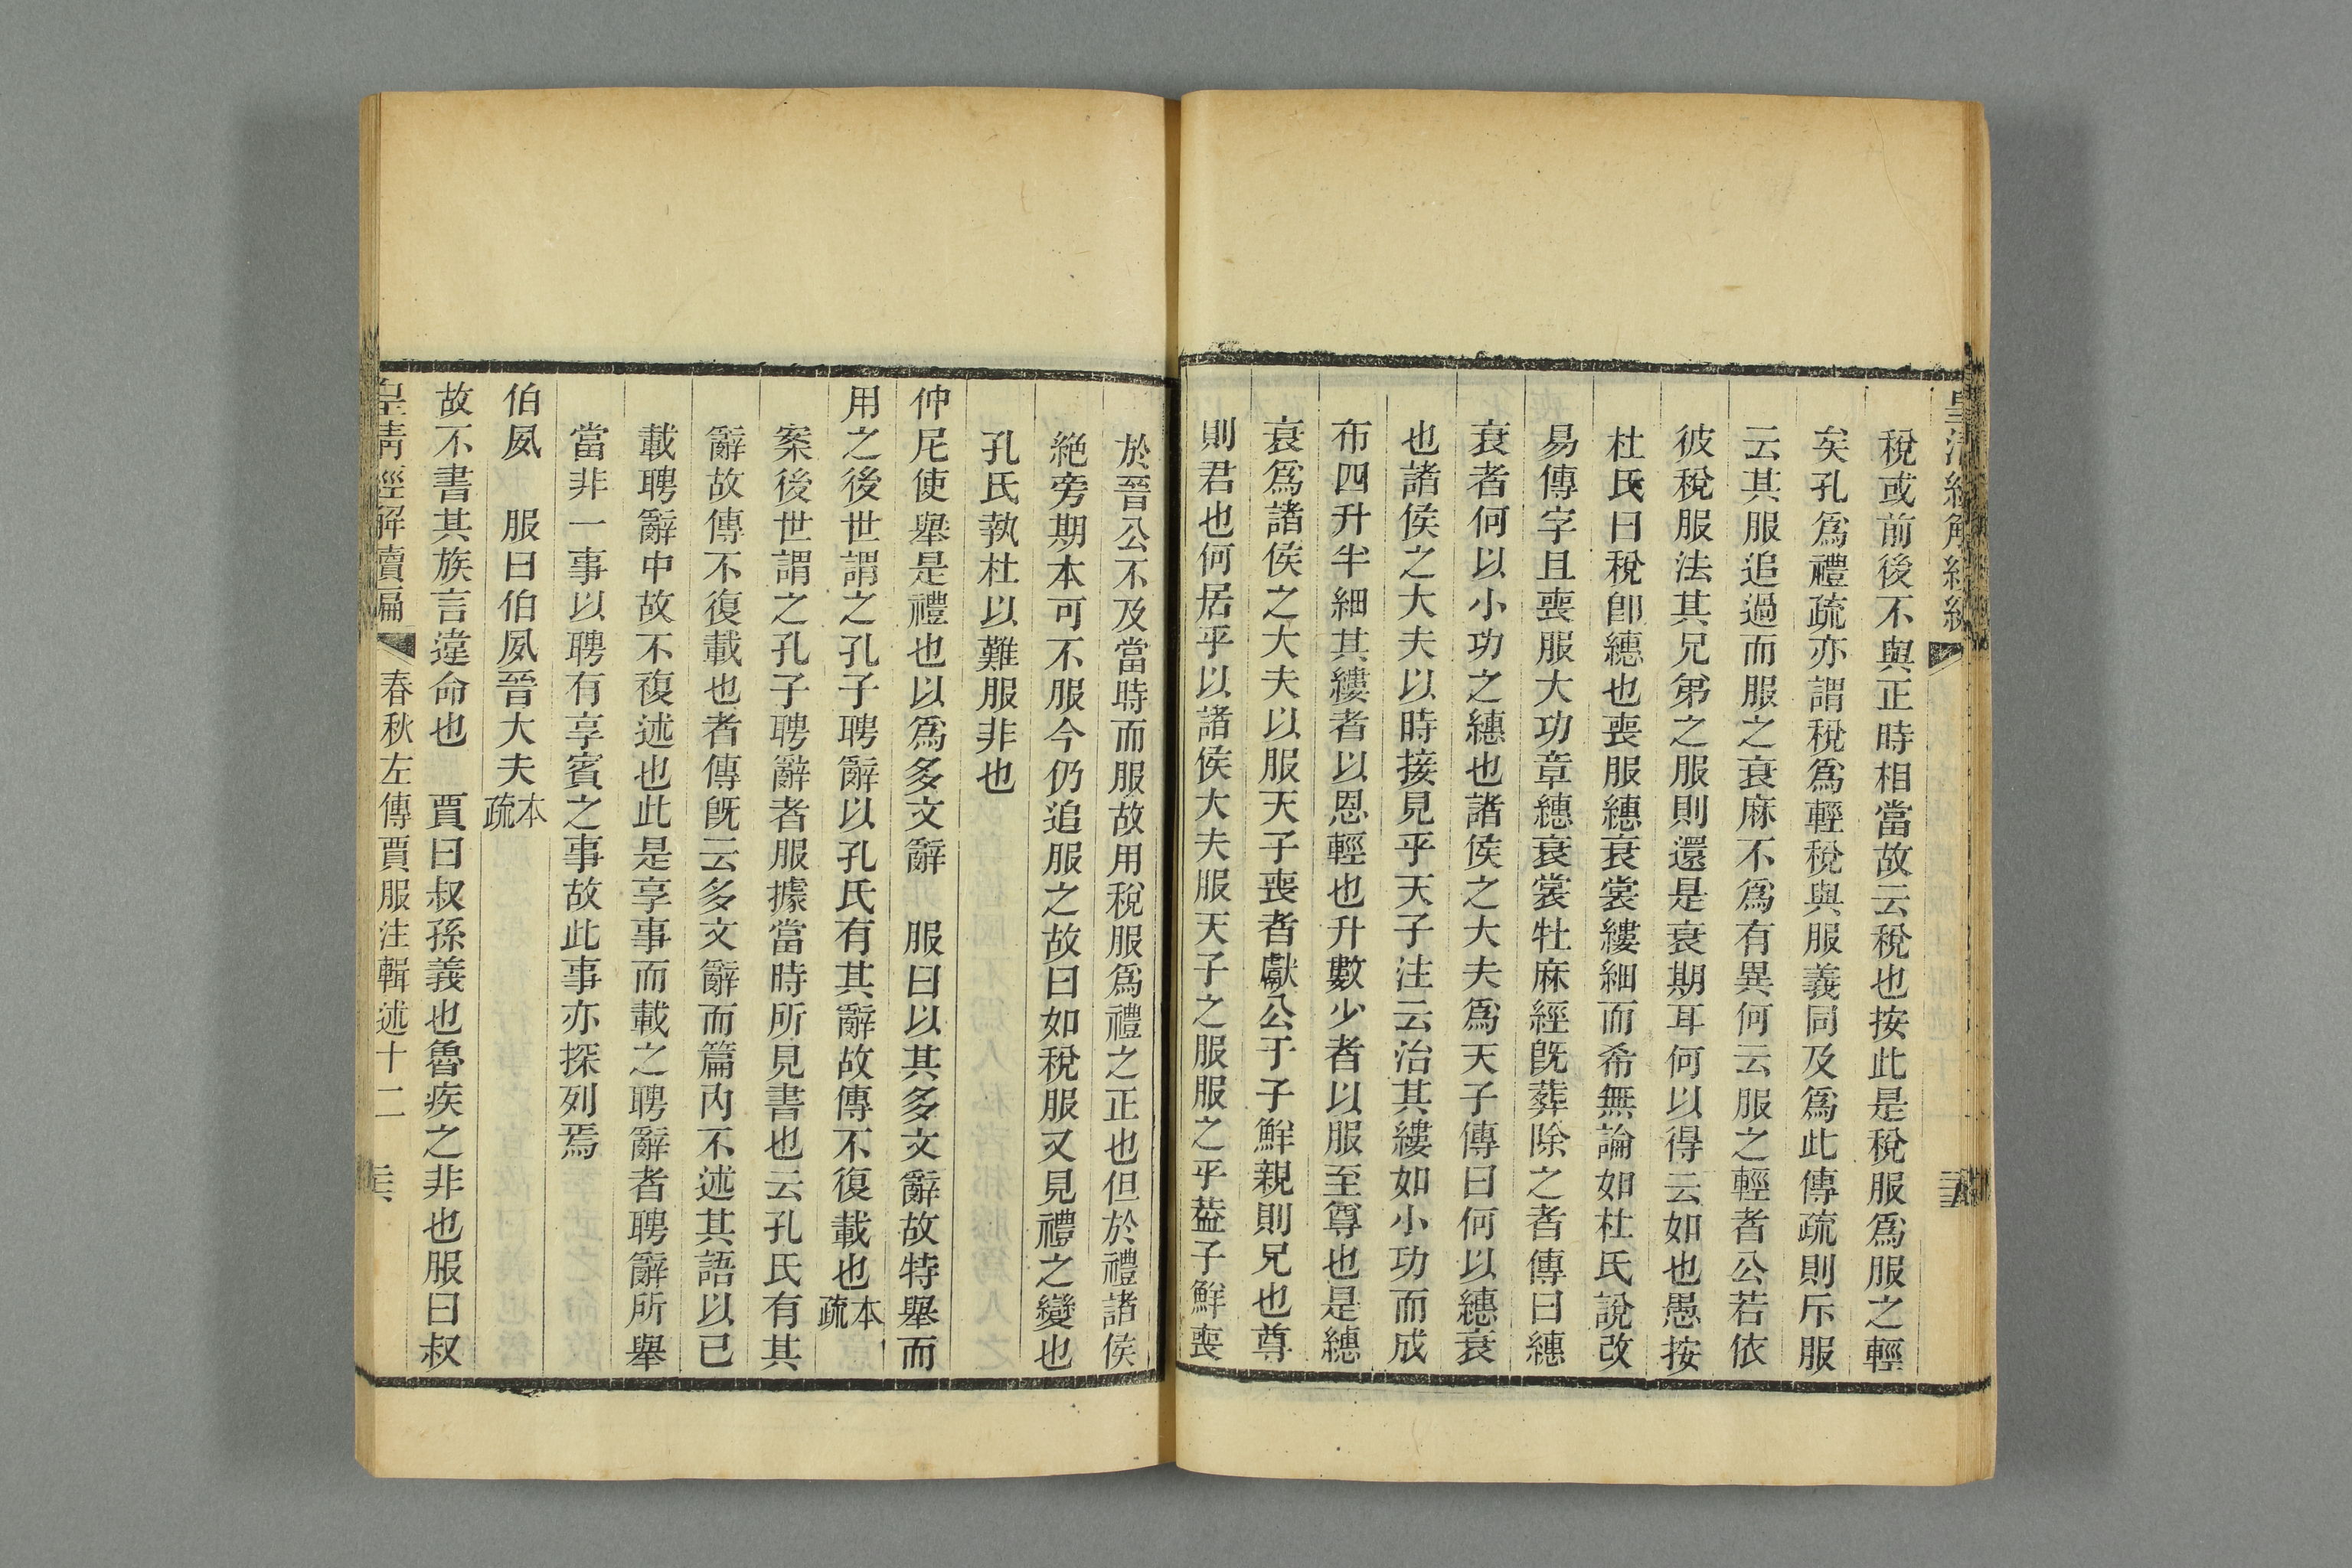 稅或前後不與正時相當故云稅也按此是稅服爲服之輕
矣孔爲禮疏亦謂稅爲輕稅與服義同及爲此傳疏則斥服
云其服追過而服之衰麻不爲有異何云服之輕者公若依
彼稅服法其兄弟之服則還是衰期耳何以得云如也愚按
杜氏曰稅卽繐也喪服繐衰裳縷細而希無論如杜氏說改
易傳字且喪服大功章繐衰裳牡麻絰旣葬除之者傳曰繐
衰者何以小功之繐也諸侯之大夫爲天子傳曰何以繐衰
也諸侯之大夫以時接見乎天子注云治其縷如小功而成
布四升半細其縷者以恩輕也升數少者以服至尊也是繐
衰爲諸侯之大夫以服天子喪者獻公于子鮮親則兄也尊
則君也何居乎以諸侯大夫服天子之服服之乎葢子鮮喪
於晉公不及當時而服故用稅服爲禮之正也但於禮諸侯
絶旁期本可不服今仍追服之故曰如稅服又見禮之變也
孔氏執杜以難服非也
仲尼使舉是禮也以爲多文辭　服曰以其多文辭故特舉而
用之後世謂之孔子聘辭以孔氏有其辭故傳不復載也本疏
案後世謂之孔子聘辭者服據當時所見書也云孔氏有其
辭故傳不復載也者傳旣云多文辭而篇內不述其語以已
載聘辭中故不複述也此是享事而載之聘辭者聘辭所舉
當非一事以聘有享賓之事故此事亦採列焉
伯夙　服曰伯夙晉大夫本疏
故不書其族言違命也　賈曰叔孫義也魯疾之非也服曰叔
皇淸經解續編　春秋左傳賈服注輯述十二